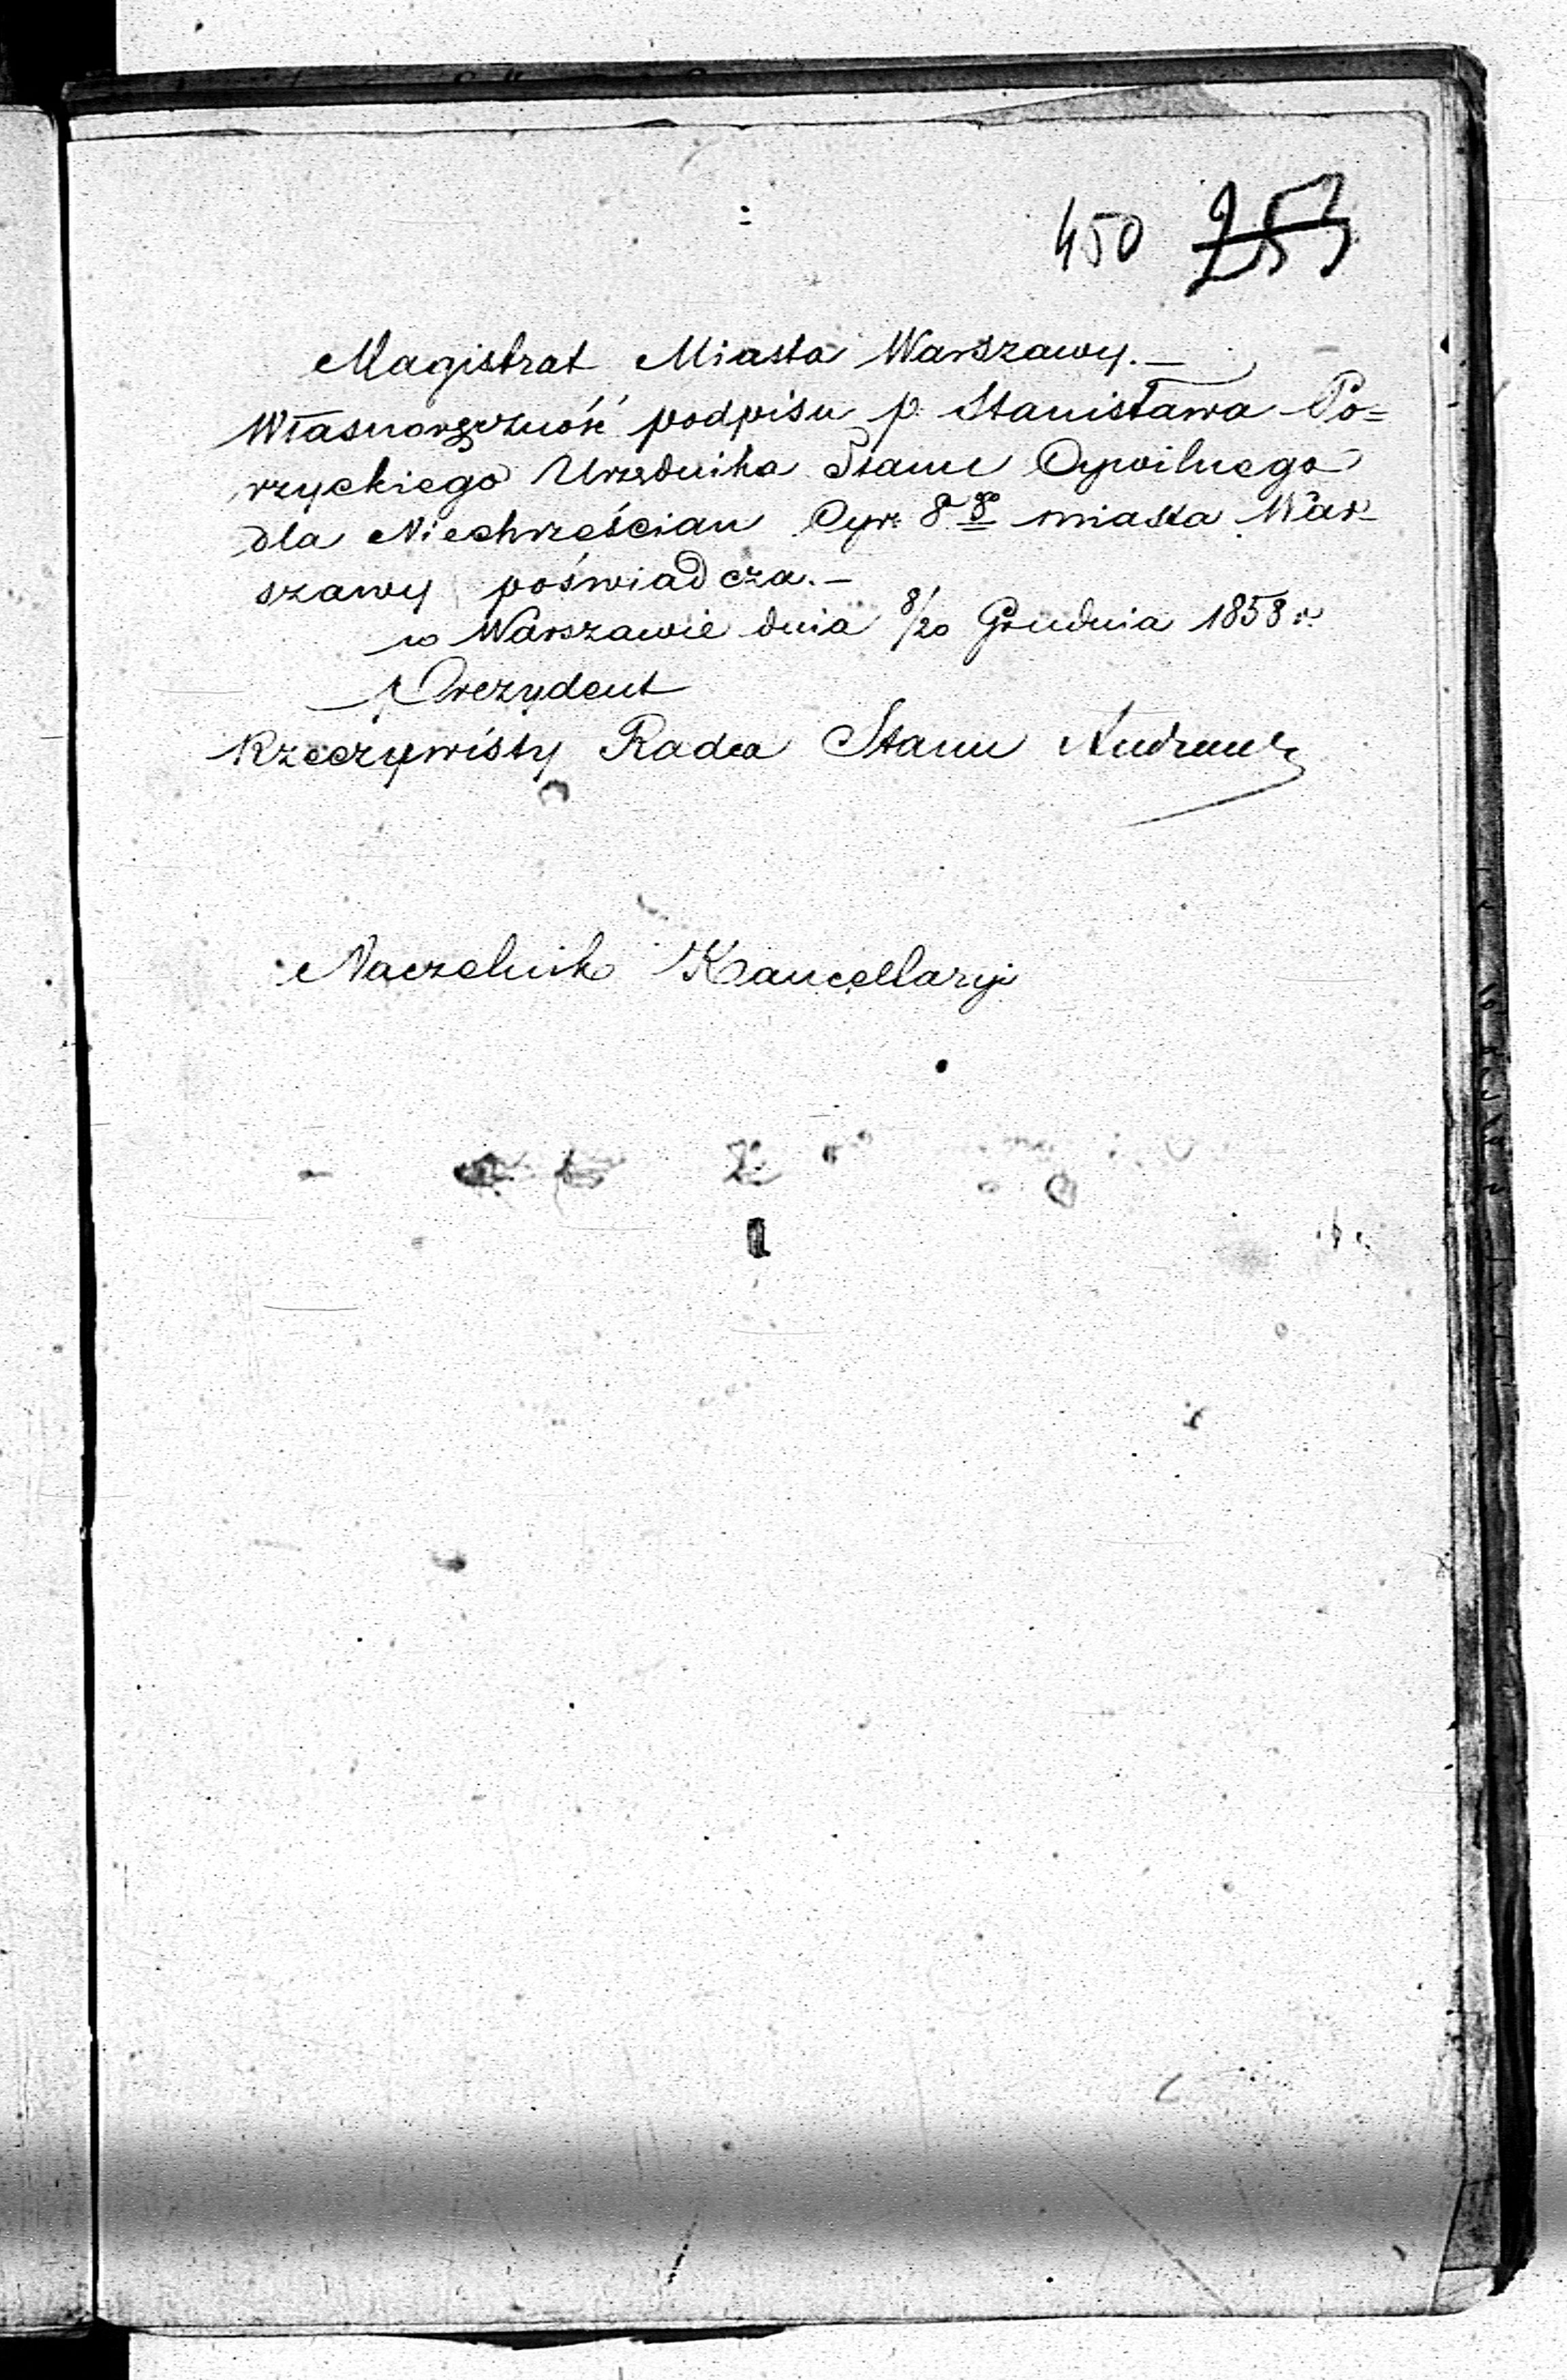 450 253
Magistrat Miasta Warszawy.—
Własnoręczność podpisu p. Stanisława Po=
rzyckiego Urzędnika Stanu Cywilnego
dla Niechrześcian Cyr: 8go miasta War-
szawy poświadcza.—
w Warszawie dnia 8/20 Grudnia 1858 r.
Prezydent
Rzeczywisty Radca Stanu
Naczelnik Kancellaryi